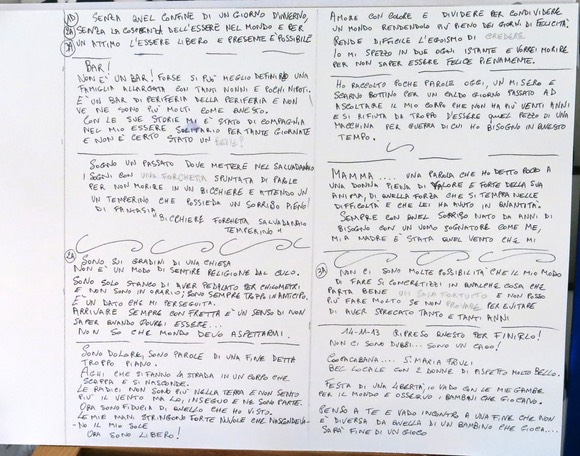 1A SENZA QUEL CONFINE DI UN GIORNO D'INVERNO,
2A SENZA LA COSCIENZA DELL'ESSERE NEL MONDO E PER
3A UN ATTIMO L'ESSERE LIBERO E PRESENTE È POSSIBILE
BAR!
NON E' UN BAR! FORSE SI PUO' MEGLIO DEFINIRE UNA
FAMIGLIA ALLARGATA CON TANTI NONNI E POCHI NIPOTI.
E' UN BAR DI PERIFERIA DELLA PERIFERIA E NON
VE NE SONO PIU' MOLTI COME QUESTO.
CON LE SUE STORIE MI E' STATO DI COMPAGNIA
NEL MIO ESSERE SOLITARIO PER TANTE GIORNATE
E NON E' CERTO STATO UN
SOGNO UN PASSATO DOVE METTERE NEL SALVADANAIO
I SOGNI CON UNA FORCHETTA SPUNTATA DI PAROLE
PER NON MORIRE IN UN BICCHIERE E ATTENDO UN
UN TEMPERINO CHE POSSIEDA UN SORRISO PIENO
DI FANTASIA
"BICCHIERE FORCHETTA SALVADANAIO
TEMPERINO"
2A SONO SUI GRADINI DI UNA CHIESA
NON E' UN MODO DI SENTIRE RELIGIONE DAL CULO.
SONO SOLO STANCO DI AVER PEDALATO PER CHILOMETRI
E NON SONO IN ORARIO; SONO SEMPRE TROPPO IN ANTICIPO,
E' UN DATO CHE MI PERSEGUITA.
ARRIVARE SEMPRE CON FRETTA E' UN SENSO DI NON
SAPER QUANDO DOVREI ESSERE...
NON SO CHE MONDO DEVO ASPETTARMI.
SONO DOLORE, SONO PAROLE DI UNA FINE DETTA
TROPPO PIANO.
AGHI CHE SI FANNO LA STRADA IN UN CORPO CHE
SCOPPIA E SI NASCONDE.
LE RADICI NON SONO PIU' NELLA TERRA E NON SENTO
PIU' IL VENTO MA LO INSEGUO E NE SONO PARTE.
ORA SONO FIDUCIA DI QUELLO CHE HO VISTO.
LE MIE MANI STRINGONO FORTE NUVOLE CHE NASCONDEVA-
-NO IL MIO SOLE
ORA SONO LIBERO!
AMORE CON DOLORE E DIVIDERE PER CONDIVIDERE
UN MONDO RENDENDOLO PIU' PIENO DEI GIORNI DI FELICITA'.
RENDE DIFFICILE L'EGOISMO DI CREDERE
IO MI SPEZZO IN DUE OGNI ISTANTE E VORREI MORIRE
PER NON SAPER ESSERE FELICE PIENAMENTE.
HO RACCOLTO POCHE PAROLE OGGI, UN MISERO E
SCARNO BOTTINO PER UN CALDO GIORNO PASSATO AD
ASCOLTARE IL MIO CORPO CHE NON HA PIU' VENTI ANNI
E SI RIFIUTA DA TROPPO D'ESSERE QUEL PEZZO DI UNA
MACCHINA PER GUERRA DI CUI HO BISOGNO IN QUESTO
TEMPO.
MAMMA.... UNA PAROLA CHE HO DETTO POCO A
UNA DONNA PIENA DI VALORE E FORTE DELLA SUA
ANIMA, DI QUELLA FORZA CHE SI TEMPRA NELLE
DIFFICOLTA' E CHE LEI HA AVUTO IN QUANTITA'.
SEMPRE CON QUEL SORRISO NATO DA ANNI DI
BISOGNO CON UN UOMO SOGNATORE COME ME,
MIA MADRE E' STATA QUEL VENTO CHE MI
3A NON CI SONO MOLTE POSSIBILITA' CHE IL MIO MODO
DI FARE SI CONCRETIZZI IN QUALCHE COSA CHE
PARTA BENE E NON POSSO
PIU' FARE MOLTO SE NON PROVARE PER EVITARE
DI AVER SPRECATO TANTO E TANTI ANNI
14-11-13 RIPRESO QUESTO PER FINIRLO!
NON CI SONO DUBBI... SONO UN CAOS!
COPACABANA.... S. MARIA FRIULI
BEL LOCALE CON 2 DONNE DI ASPETTO MOLTO BELLO.
FESTA DI UNA LIBERTA', IO VADO CON LE MIE GAMBE
PER IL MONDO E OSSERVO I BAMBINI CHE GIOCANO.
PENSO A TE E VADO INCONTRO A UNA FINE CHE NON
E' DIVERSA DA QUELLA DI UN BAMBINO CHE GIOCA....
SARA' FINE DI UN GIOCO